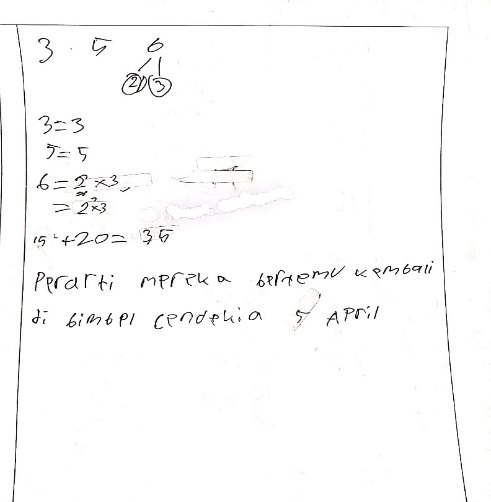 3 . 5 6
2 3
3 = 3
5 = 5
6 = 2 x 3
= 2 x 3
15 + 20 = 35
Perarti mereka bertemu kembali
di bimbel cendekia 5 April